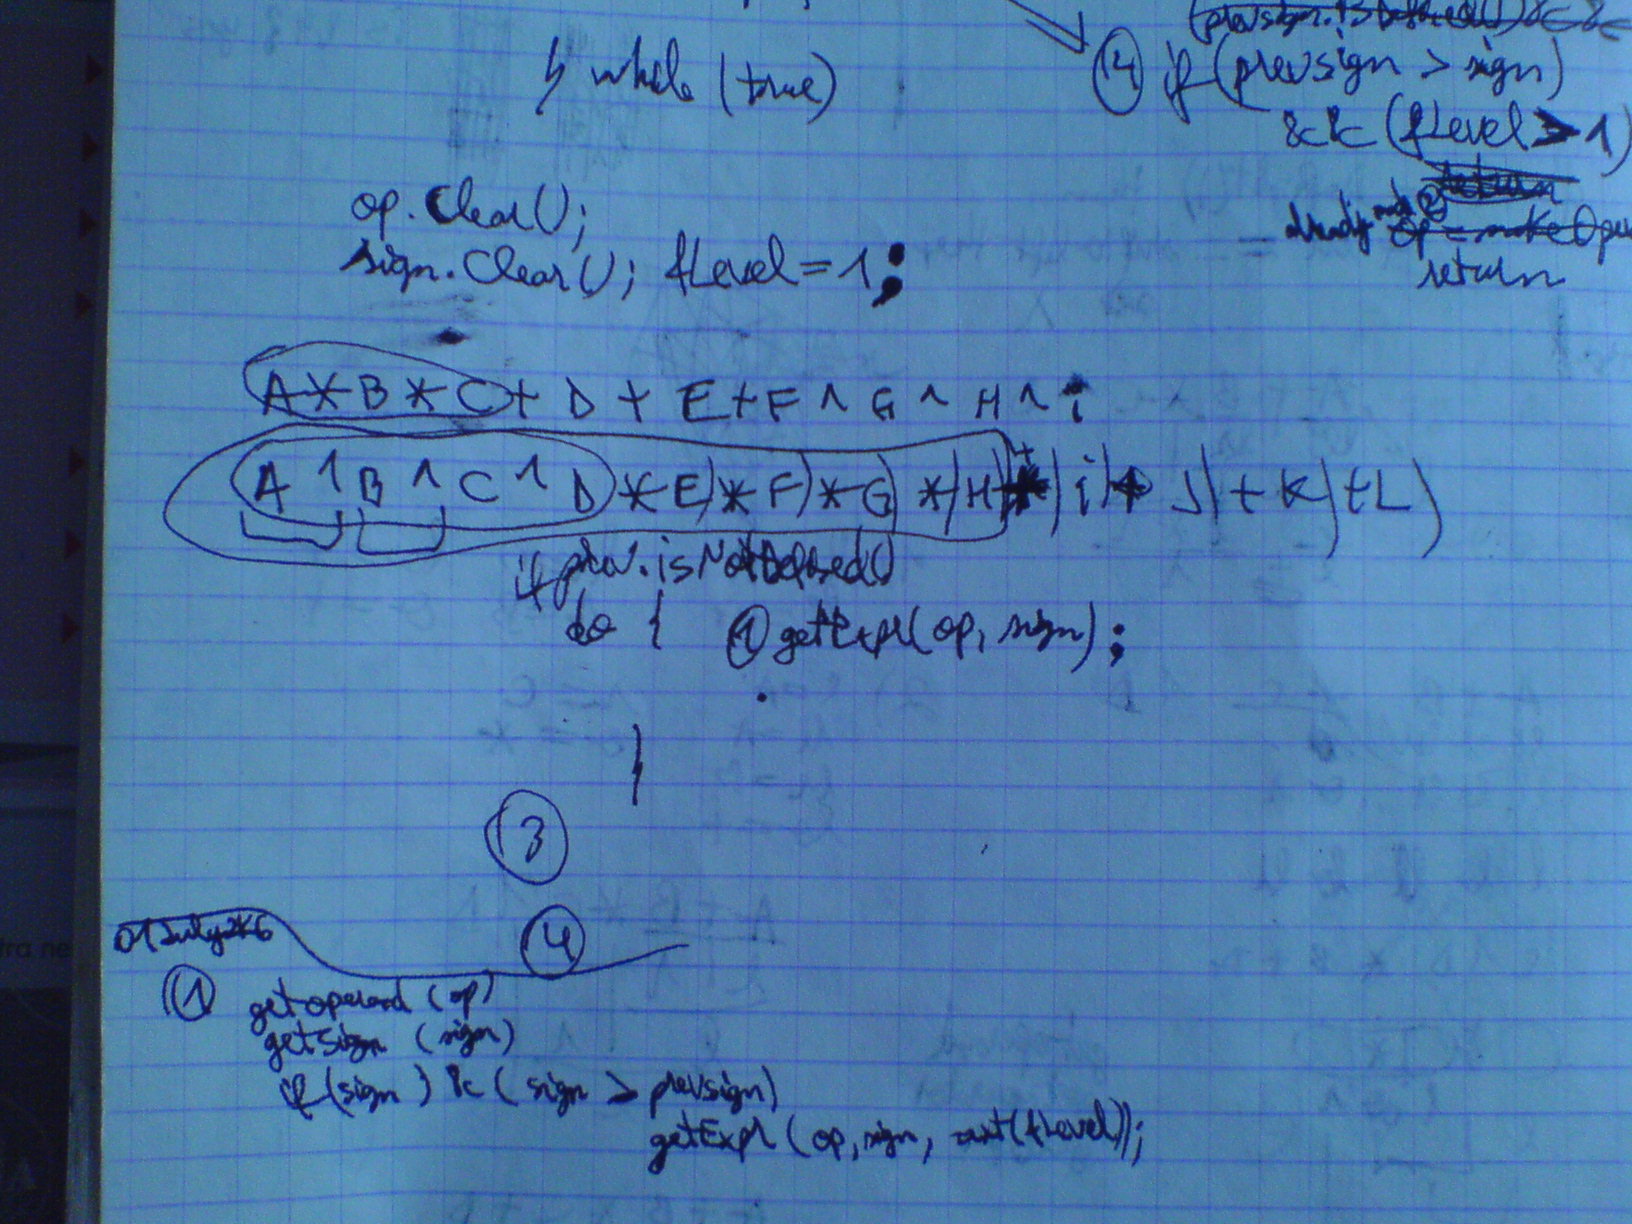 while (true)
(4) if (prevsign > sign)
&& (fLevel > 1)
already
return
op.Clear();
sign.Clear(); fLevel = 1;
A * B * C + D + E + F ^ G ^ H ^ i
A ^ B ^ C ^ D * E) * F) * G) * H) + i) + J) + K) + L)
if prev.isNotDefined()
do { (1) getExpr(op, sign);
}
(3)
(4)
01 July
(1) getoperand (op)
getsign (sign)
if (sign) & (sign > prevsign)
getExpr (op, sign, next(fLevel));